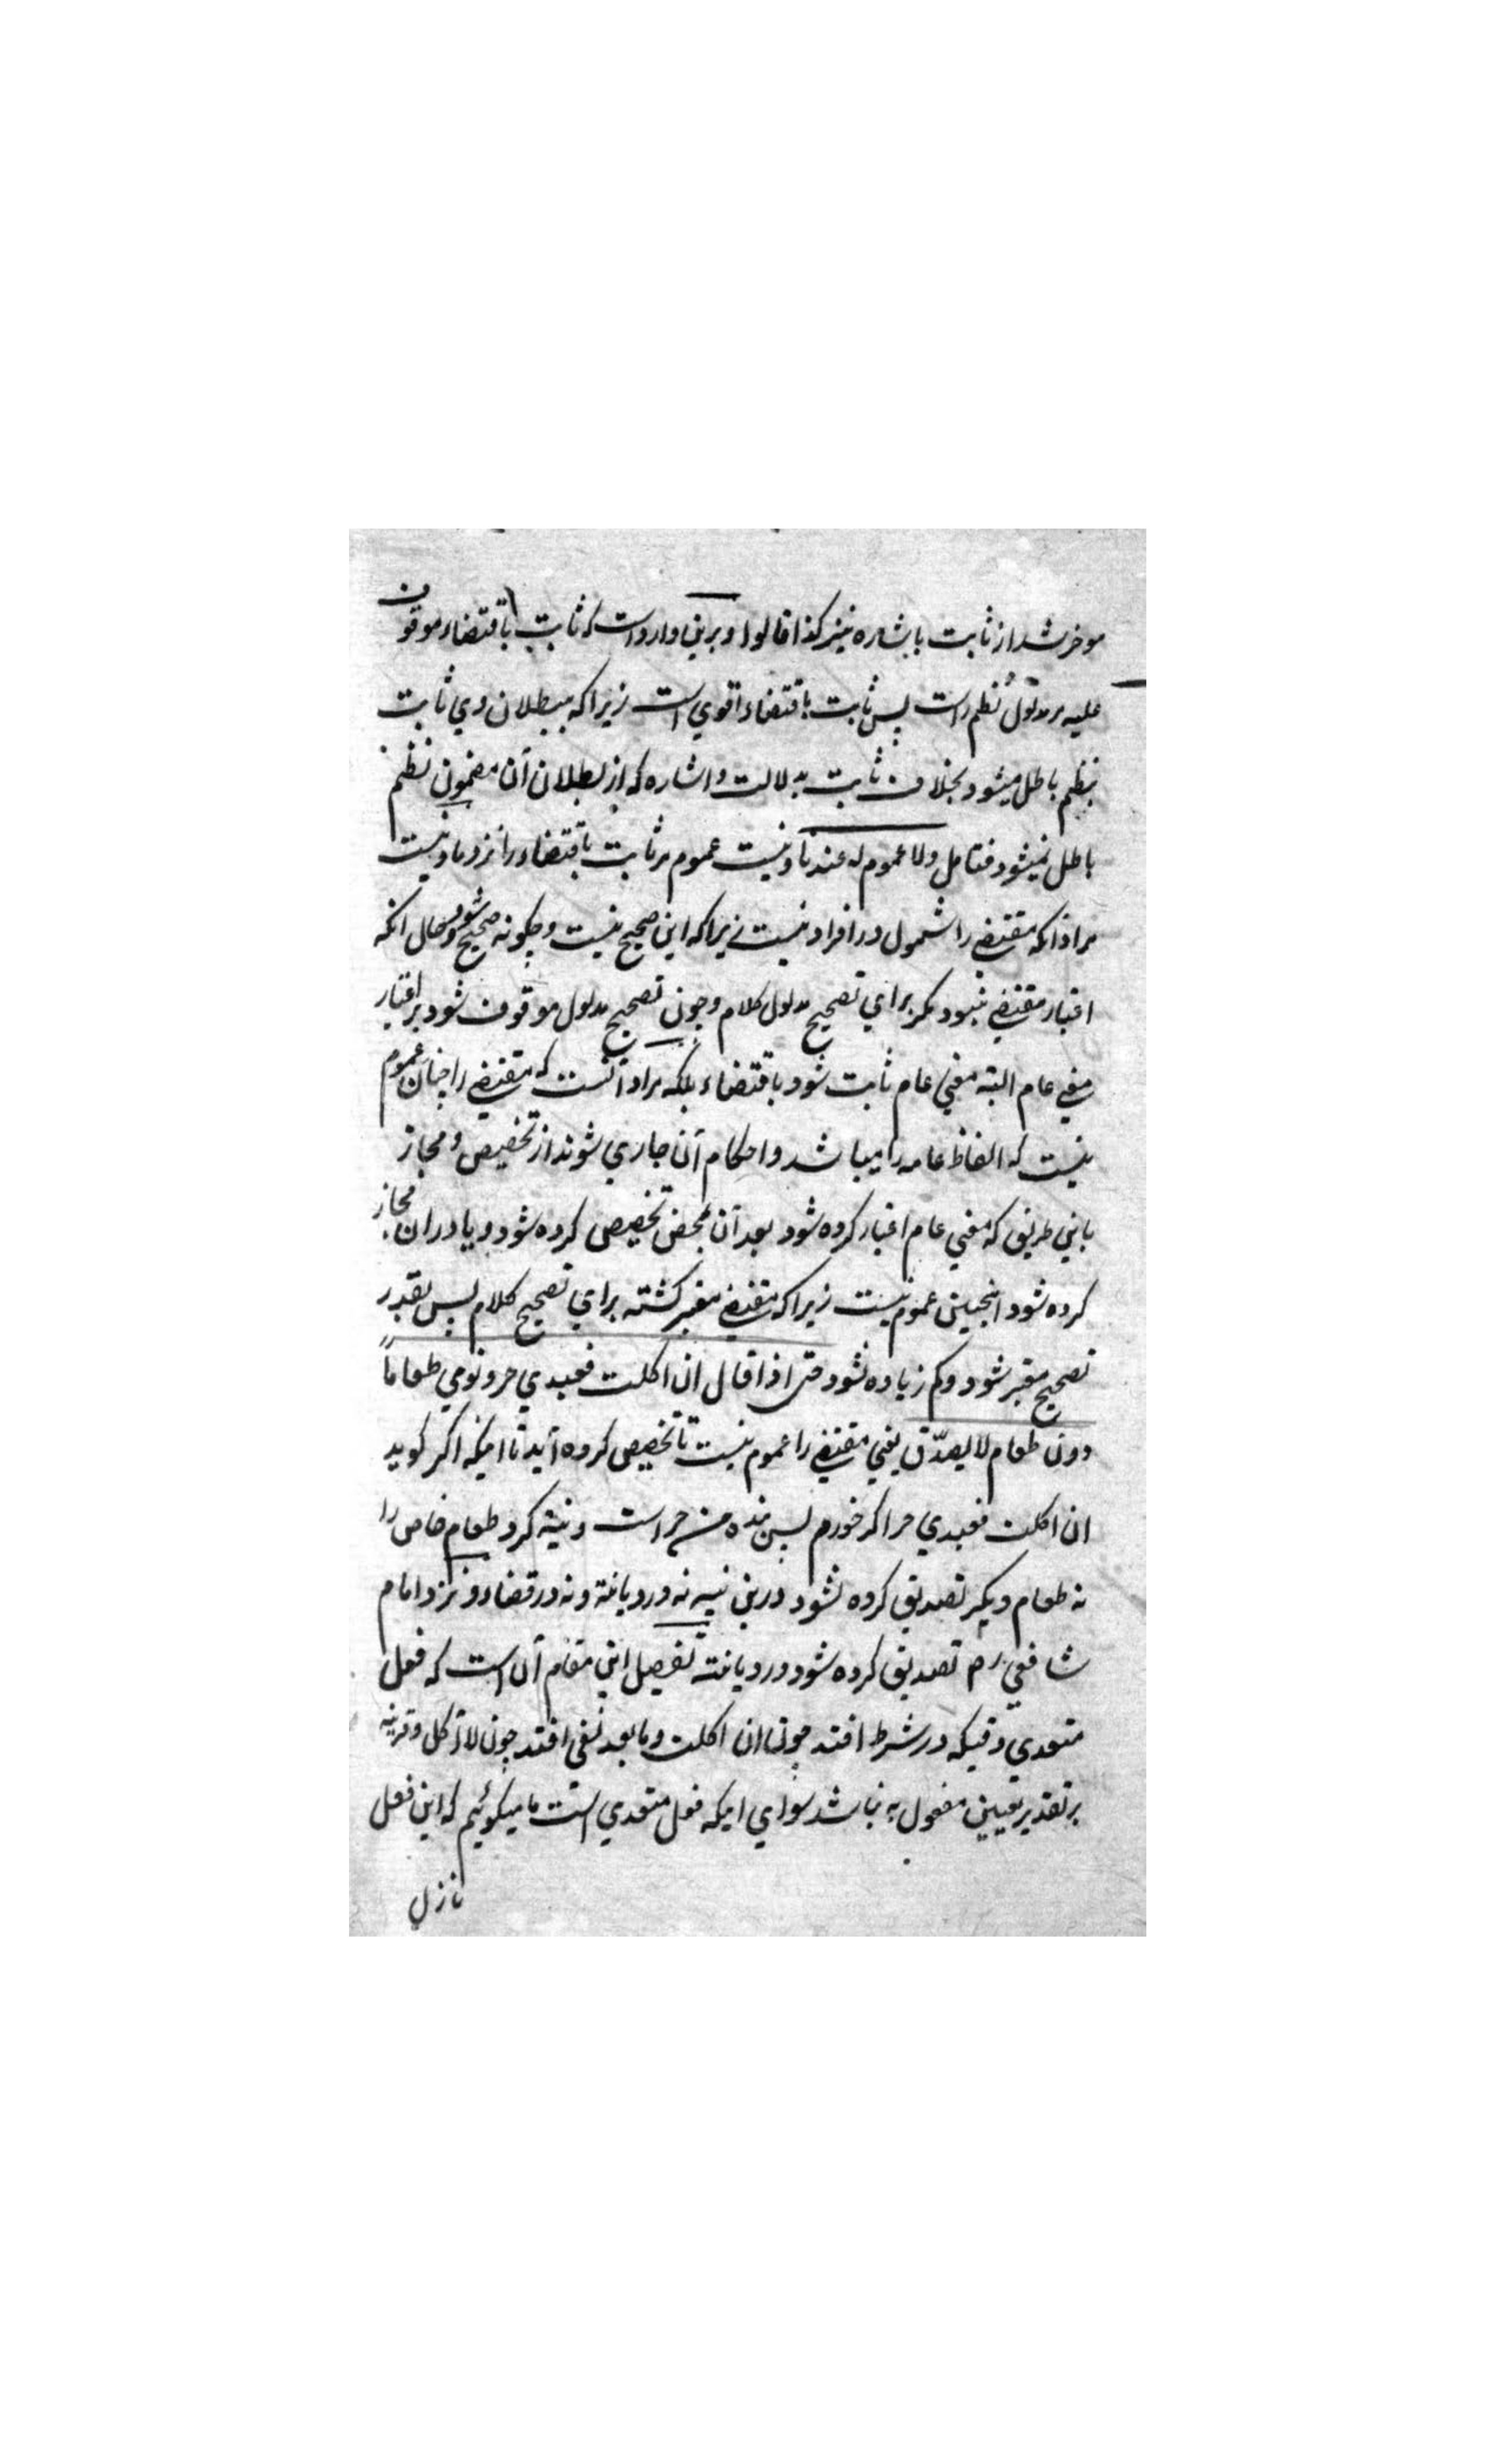 موخر شد از ثابت باشاره نیز کذا قالوا و برین وارد است که ثابت باقتضاء موقوف
علیه مر مدلول نظم راست پس ثابت باقتضاء اقوی است زیرا که ببطلان وی ثابت
بنظم باطل میشود بخلاف ثابت بدلالت و اشاره که از بطلان آن مضمون نظم
باطل نمیشود فتامل ولا عموم له عندنا و نیست عموم مر ثابت باقتضاء را نزد ما و نیست
مراد انکه مقتضی را شمول در افراد نیست زیرا که این صحیح نیست و چکونه صحیح شود و حال انکه
اعتبار مقتضی نبود مکر برای تصحیح مدلول کلام و چون تصحیح مدلول موقوف شود بر اعتبار
معنی عام البته معنی عام ثابت شود باقتضاء بلکه مراد آنست که مقتضی را چنان عموم
نیست که الفاظ عامه را میباشد و احکام آن جاری شوند از تخصیص و مجاز
باین طریق که معنی عام اعتبار کرده شود بعد آن بمحض تخصیص کرده شود و یا در ان مجاز
کرده شود اینچنین عموم نیست زیرا که مقتضی معتبر کشته برای تصحیح کلام پس بقدر
تصحیح معتبر شود و کم زیاده نشود حتی اذا قال ان اکلت فعبدی حر و نوی طعاماً
دون طعام لا یصدّق یعنی مقتضی را عموم نیست تا تخصیص کرده آید تا اینکه اکر کوید
ان اکلت فعبدی حر اکر خورم پس بنده من حر است و نیة کرد طعام خاص را
نه طعام دیکر تصدیق کرده نشود درین نیه نه در دیانة و نه در قضاء و نزد امام
شافعی رح تصدیق کرده شود در دیانته تفصیل این مقام آن است که فعل
متعدی وقتیکه در شرط افتد چون ان اکلت و ما بعد نفی افتد چون لا آکل و قرینه
بر تقدیر تعیین مفعول به نباشد سوای اینکه فعل متعدی است ما میکوئیم که این فعل
نازل